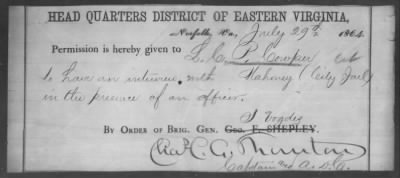 HEAD QUARTERS DISTRICT OF EASTERN VIRGINIA,
Norfolk, Va., July 29th 1864.
Permission is hereby given to L. C. P. Cowper
to have an interview with Mahoney (City Jail)
in the presence of an officer.
I Vogdes
BY ORDER OF BRIG. GEN. GEO. F. SHEPLEY.
Chas C. G. Thornton
Captain and A. D. C.